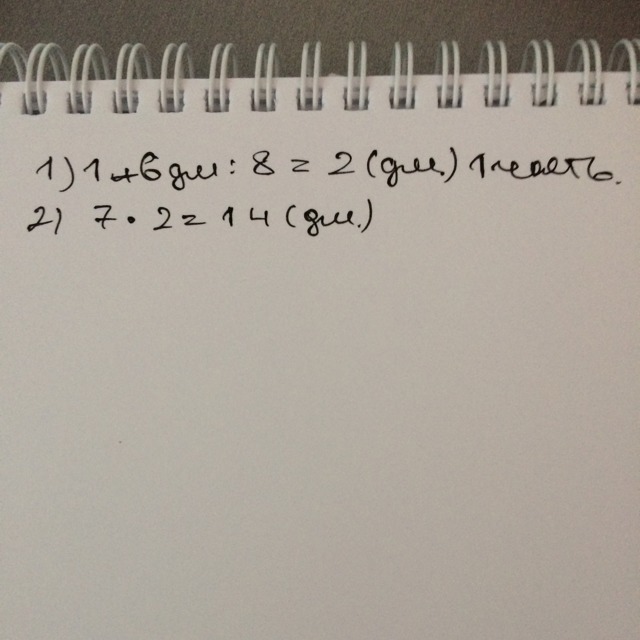 1) 1+6 дм : 8 = 2 (дм.) 1 часть.
2) 7 · 2 = 14 (дм.)